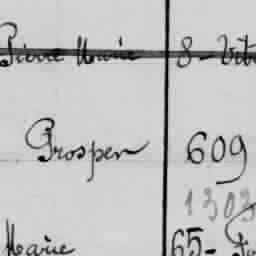 Pierre Marie 8 - Vit
Prosper 609
1303
Marie 65 -